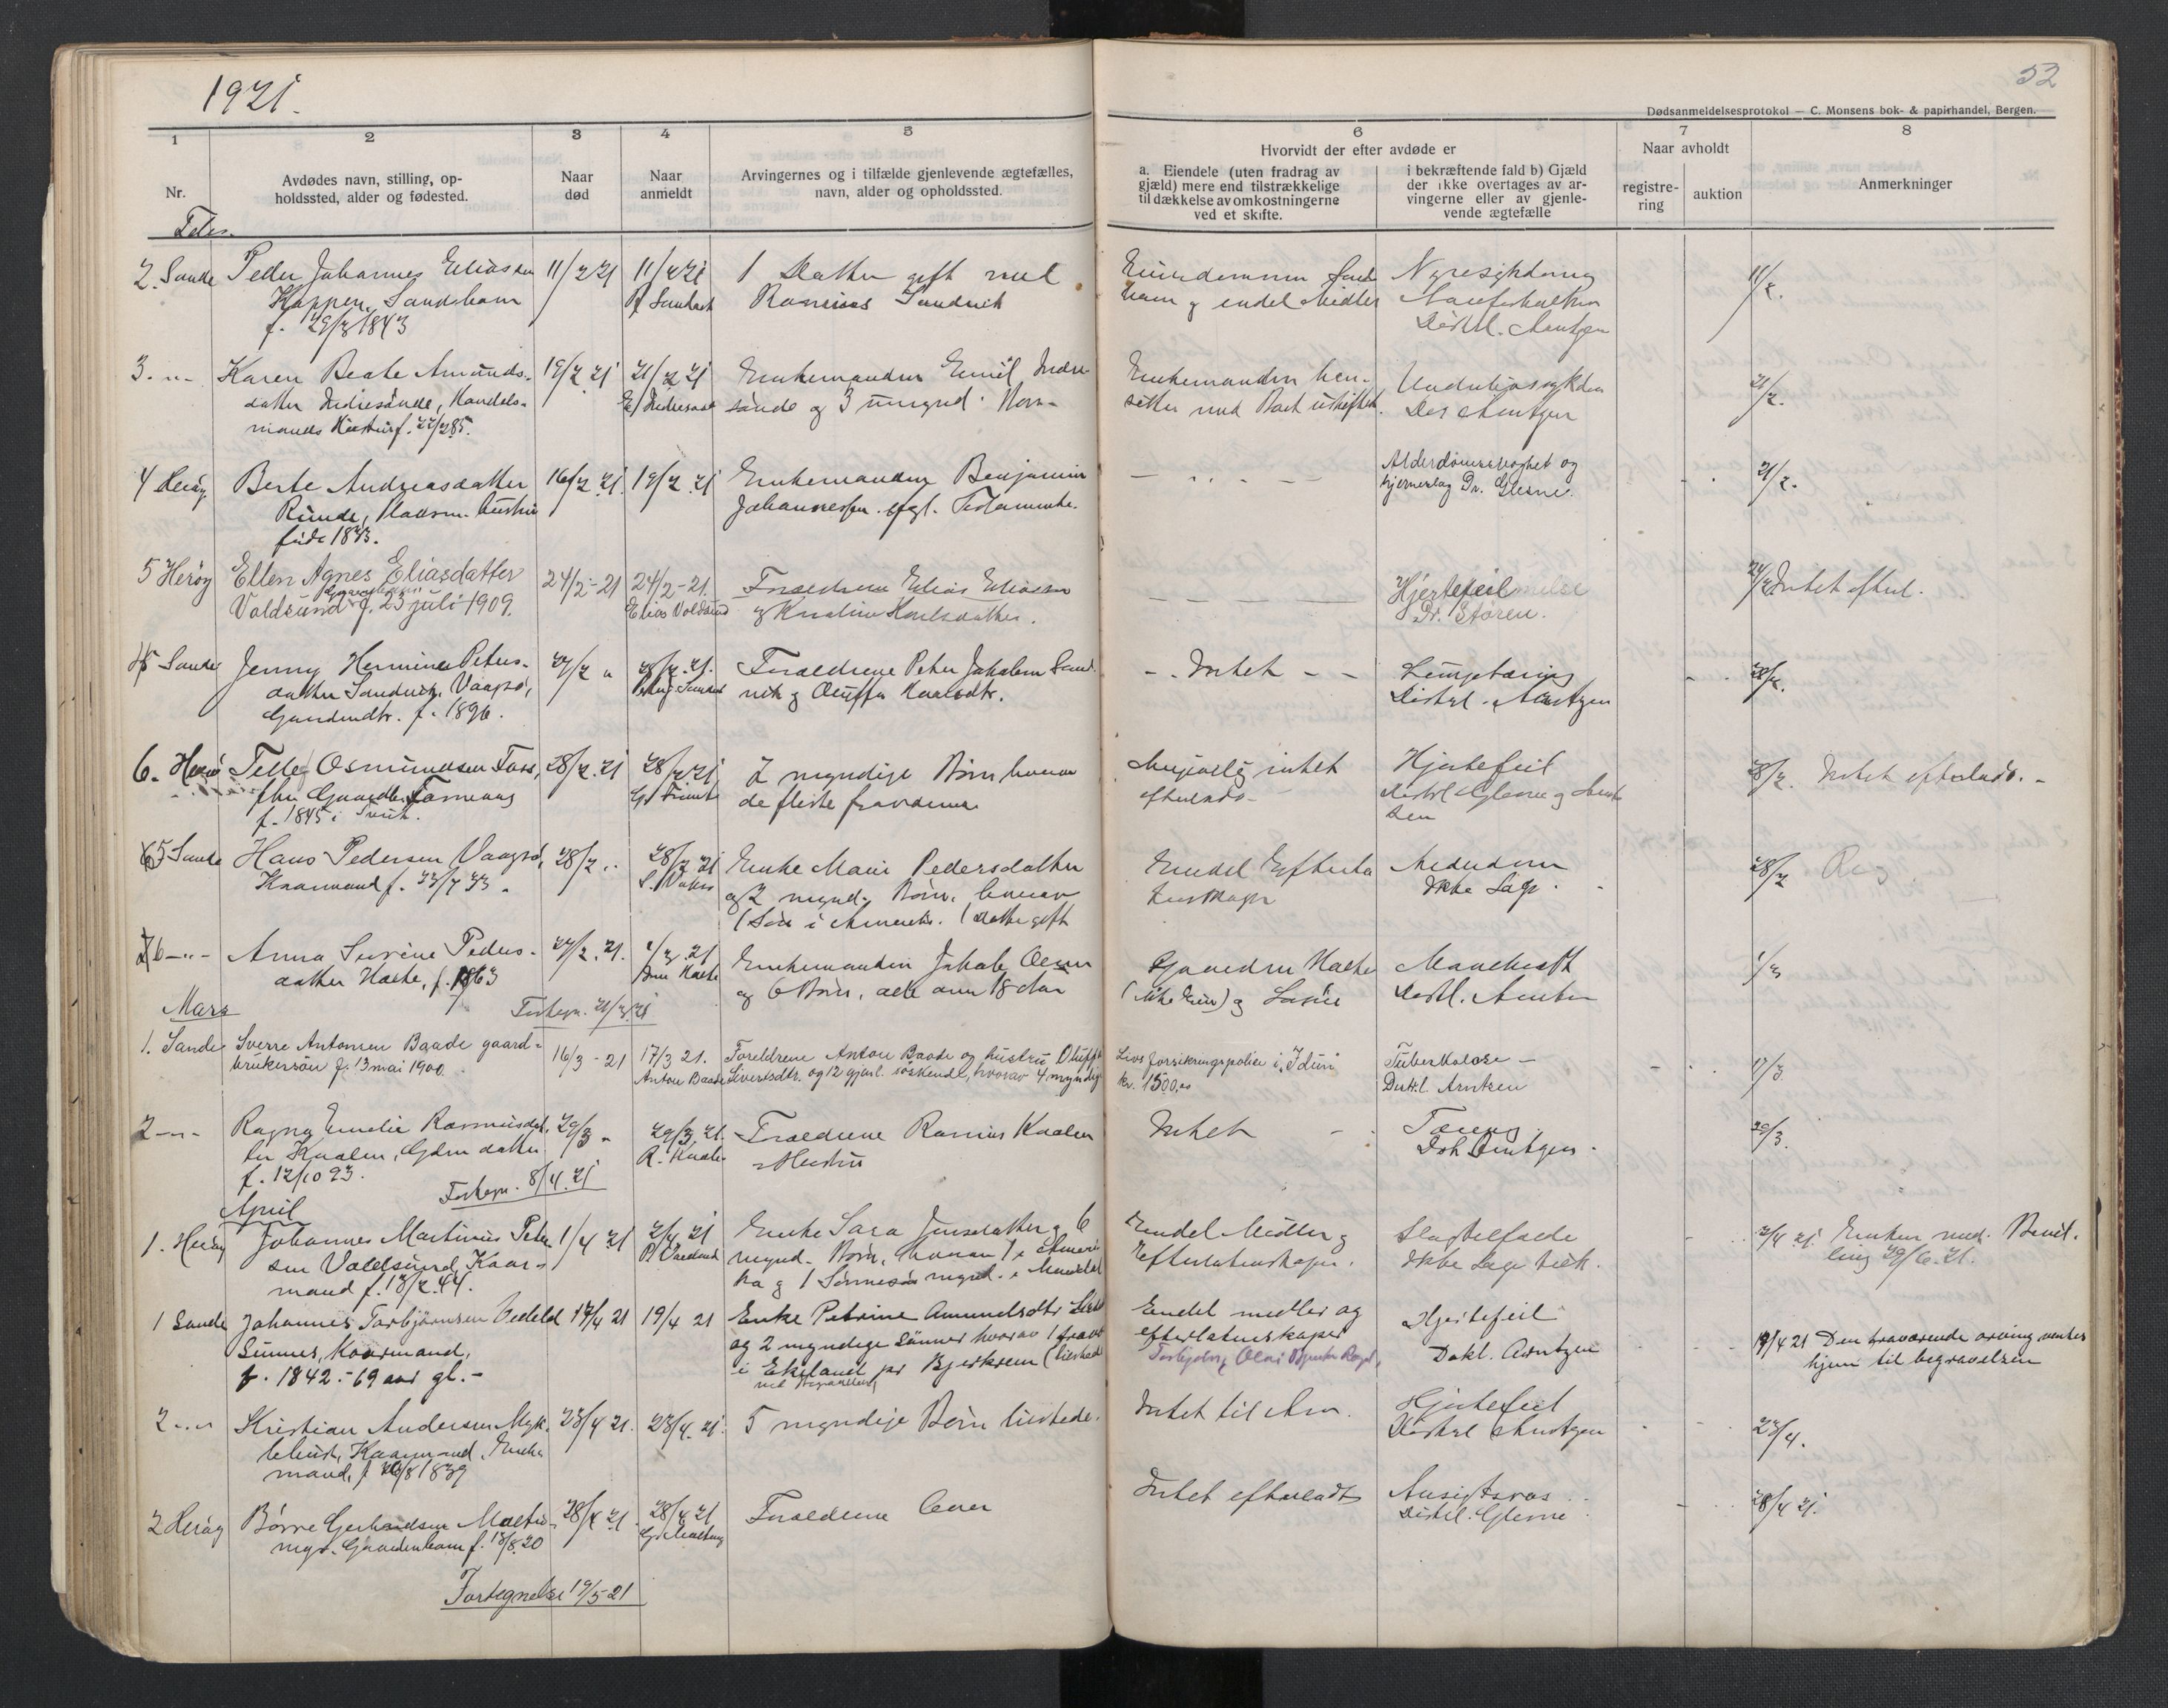 1921.
52
Dødsanmeldelsesprotokol — C. Monsens bok- & papirhandel, Bergen.
1
2
3
4
5
6
7
8
Nr.
Avdødes navn, stilling, op-
holdssted, alder og fødested.
Naar
død
Naar
anmeldt
Arvingernes og i tilfælde gjenlevende ægtefælles,
navn, alder og opholdssted.
Hvorvidt der efter avdøde er
a. Eiendele (uten fradrag av
gjæld) mere end tilstrækkelige
til dækkelse av omkostningerne
ved et skifte.
i bekræftende fald b) Gjæld
der ikke overtages av ar-
vingerne eller av gjenle-
vende ægtefælle
Naar avholdt
registre-
ring
auktion
Anmerkninger
2. Sande Peder Johannes Eliassen
Koppen, Sandsham
f. 29/3 1843
11/2 21
11/2 21
1 Datter gift med
Rasmus Sandvik
og endel Midler
Distrl. Arntzen
11/2.
3. -"- Karen Beate Amunds-
datter Indresande, Handels-
mands Hustru f.
19/2 21
21/2 21
E. Indresande
Enkemanden Emil Indre-
sande og 3 umynd. Børn
Enkemanden hen-
sitter med Boet uskiftet.
Distr. Arntzen
21/2.
4 Herøy Berte Andreasdatter
Runde, Kaarm. hustru
født 1843.
16/2 21.
19/2 21
Enkemanden Benjamin
Johannessen. Testamente.
Alderdomssvaghet og
hjerneslag Dr. Glerne.
21/2.
5 Herøy Ellen Agnes Eliasdatter
Voldsund f. 23 juli 1909.
24/2-21
24/2-21.
Elias Voldsund
Forældrene Elias Eliassen
og Kristine Karlsdatter.
Hjertefeil
Dr. Støren.
24/2 Intet efterl.
5 Sande Jenny Hermine Peters-
datter Sandvik, Vaagsø,
Gaardmdtr. f. 1896.
27/2 "
28/2 21.
Forældrene Peter Jakobsen Sand-
vik og Oluffa Knutsdtr.
- . Intet - -
Lungetæring
Distrl. Arntzen
28/2.
6. Herø Telle Osmundsen Toss,
fhv. Gaardbr. Tarneaas
f. 1845 i
28/2. 21
28/2 21
2 myndige Børn hvorav
de fleste fraværende
intet
efterlads.
Hjertefeil
Distrl Glerne og
28/2. Intet efterlads. -
5 Sande Hans Pedersen Vaagsø,
Kaarmand f.
28/2 "
28/2 21
Enke Mari Pedersdatter
og 2 mynd. Børn, hvorav
1 Søn i Amerika. 1 Datter gift
Endel Efterla-
tenskaper
Alderdom
Ikke Læge.
28/2 Reg
6 -"- Anna Severine Peders-
datter Hakke, f. 1863
27/2. 21.
1/3. 21
Enkemanden Jakob Olsen
og 6 Børn, alle over 18 Aar
Gaarden
og Løsøre
Distrl. Arntzen
1/3
Mars
Fortegn. 21/3. 21
1. Sande Sverre Antonsen Baade gaard-
brukersøn f. 13 mai 1900
16/3 - 21
17/3 21.
Anton Baade
Foreldrene Anton Baade og hustru Oluffa
Sivertsdtr. og 12 gjenl. søskende, hvorav 4 myndige
Livsforsikringspolise i „Idun"
kr. 1500,00
Tuberkolose -
Distrl. Arntzen
17/3
2 -"- Ragna Emelie Rasmusdat-
ter Knalen, Gdm datter
f. 12/10 93.
29/3 "
29/3, 21.
R. Knalen
Forældrene Rasmus Knalen
og Hustru
Intet
Tæring
Dok Arntzen.
29/3.
Fortegn. 8/4. 21
April
1. Herøy Johannes Martinus Peder-
sen Voldsund, Kaar-
mand f. 18/2. 44.
1/4 21
2/4 21
Enke Sara Jensdatter og 6
mynd. Børn, hvorav 1 i Ameri-
ka og 1 Sønnesøn mynd. i
Endel Midler og
Efterlatenskaper.
Slagtilfælde
Ikke Læge tilk.
2/4 21. Enken med. Bevil-
ling 29/6. 21.
1 Sande Johannes Torbjørnsen Vedeld
Sunnes, Kaarmand,
f. 1842. - 69 aar gl. -
17/4 21
19/4 21
Enke Petrine Amundsdtr
og 2 myndige sønner hvorav 1 frav.
i Ekeland pr Bjerkrem (tilstede
ved Begravelsen)
Endel midler og
efterlatenskaper
Hjertefeil
Dokt. Arntzen
19/4 21 Den fraværende arving ventes
hjem til begravelsen
2 -"- Kristian Andersen Myk-
lebust, Kaarmand, Enke-
mand, f. 1839
23/4 21.
23/4. 21.
5 myndige Børn tilstede.
Intet til Arv.
Hjertefeil
Distrl Arntzen
23/4.
2 Herøy Børre Gerhardsen Moltu-
myr. Gaardmbarn f. 18/8. 20
28/4 21.
28/4 21
Forældrene lever
Intet efterladt
Ansigtsros
Distrl. Glerne
28/4 21.
Fortegnelse 19/5-21